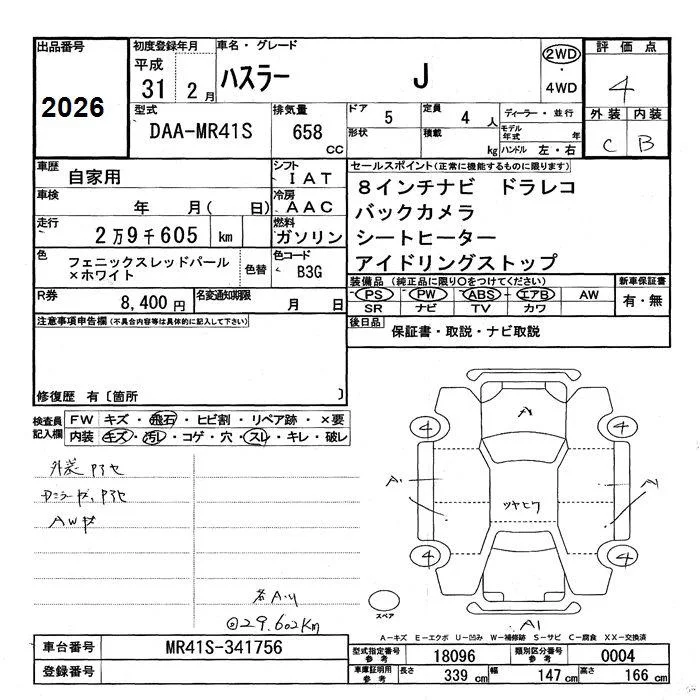 出品番号
2026
初度登録年月
平成
31 2月
車名・グレード
ハスラー J
2WD
・
4WD
評価点
4
外装 内装
C B
型式
DAA-MR41S
排気量
658 CC
ドア 5
形状
定員 4人
積載 kg
ディーラー・並行
モデル年式 年
ハンドル 左・右
車歴 自家用
シフト IAT
車検 年 月( 日)
冷房 AAC
走行 2万9千605 km
燃料 ガソリン
色 フェニックスレッドパール
×ホワイト
色替
色コード B3G
セールスポイント(正常に機能するものに限ります)
8インチナビ ドラレコ
バックカメラ
シートヒーター
アイドリングストップ
装備品 (純正品に限り○をつけてください)
PS PW ABS エアB AW
SR ナビ TV カワ
新車保証書
有・無
R券 8,400円
名変通知期限 月 日
後日品 保証書・取説・ナビ取説
注意事項申告欄(不具合内容等は具体的に記入して下さい)
修復歴 有〔箇所 〕
検査員
記入欄
FW キズ・飛石・ヒビ割・リペア跡・×要
内装 キズ・汚レ・コゲ・穴・スレ・キレ・破レ
外装
AWキ
29.602Km
A
4 4
A1
ツヤヒケ
4 4
スペア
A1
A-キズ E-エクボ U-凹み W-補修跡 S-サビ C-腐食 XX-交換済
車台番号 MR41S-341756
登録番号
型式指定番号
参考
18096
類別区分番号
参考
0004
車庫証明用
参考
長さ 339 cm 幅 147 cm 高さ 166 cm